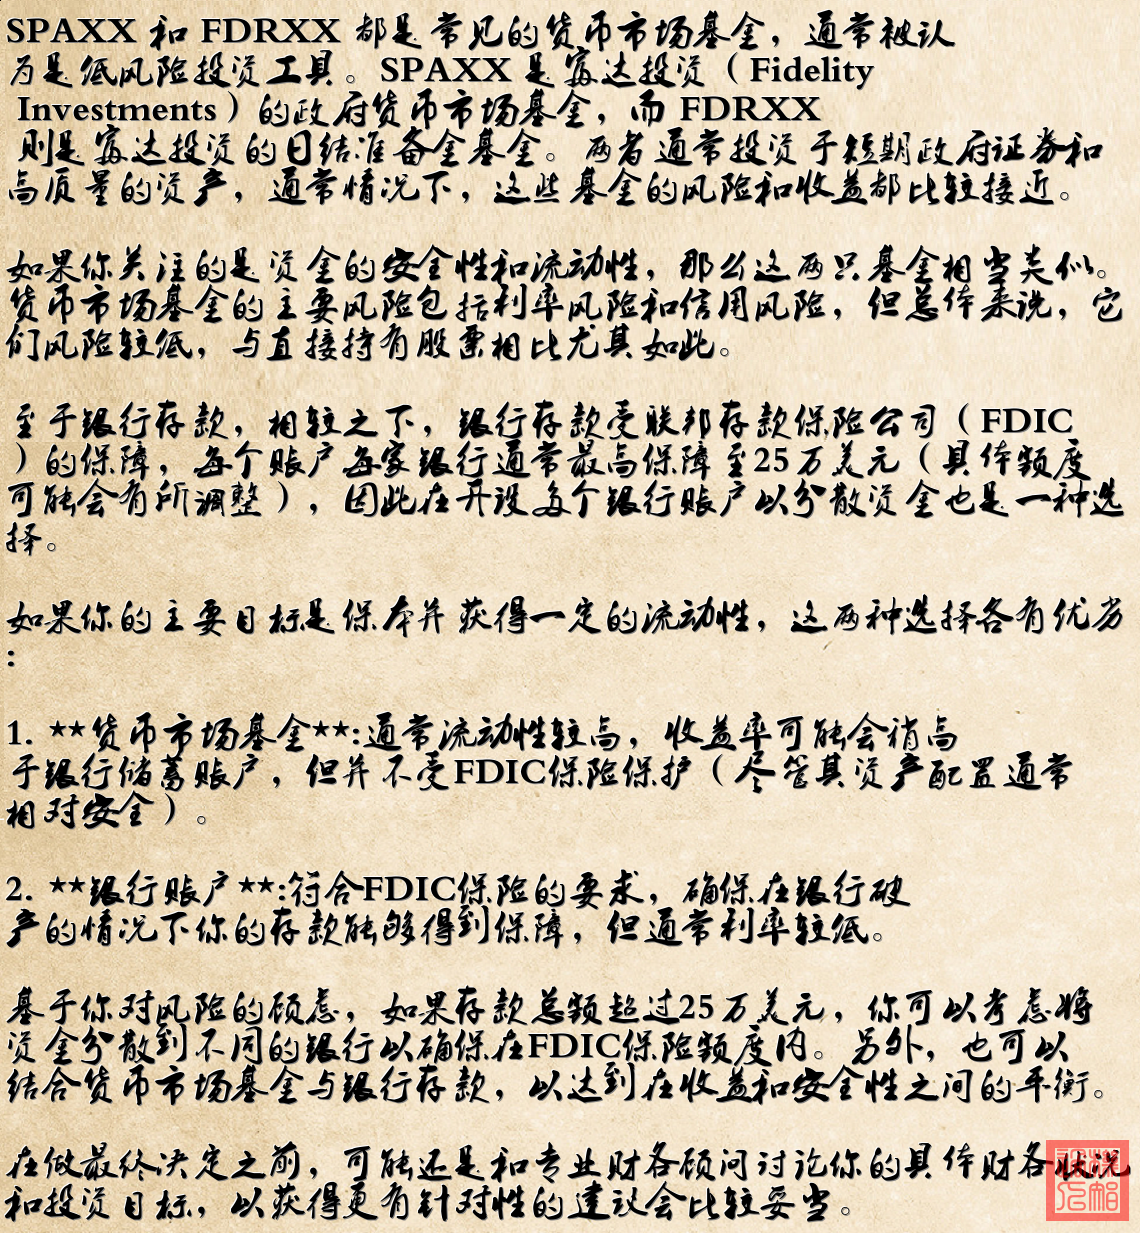 SPAXX 和 FDRXX 都是常见的货币市场基金，通常被认
为是低风险投资工具。SPAXX 是富达投资（Fidelity
Investments）的政府货币市场基金，而 FDRXX
则是富达投资的日结准备金基金。两者通常投资于短期政府证券和
高质量的资产，通常情况下，这些基金的风险和收益都比较接近。
如果你关注的是资金的安全性和流动性，那么这两只基金相当类似。
货币市场基金的主要风险包括利率风险和信用风险，但总体来说，它
们风险较低，与直接持有股票相比尤其如此。
至于银行存款，相较之下，银行存款受联邦存款保险公司（FDIC
）的保障，每个账户每家银行通常最高保障至25万美元（具体额度
可能会有所调整），因此在开设多个银行账户以分散资金也是一种选
择。
如果你的主要目标是保本并获得一定的流动性，这两种选择各有优劣
：
1. **货币市场基金**:通常流动性较高，收益率可能会稍高
于银行储蓄账户，但并不受FDIC保险保护（尽管其资产配置通常
相对安全）。
2. **银行账户**:符合FDIC保险的要求，确保在银行破
产的情况下你的存款能够得到保障，但通常利率较低。
基于你对风险的顾虑，如果存款总额超过25万美元，你可以考虑将
资金分散到不同的银行以确保在FDIC保险额度内。另外，也可以
结合货币市场基金与银行存款，以达到在收益和安全性之间的平衡。
在做最终决定之前，可能还是和专业财务顾问讨论你的具体财务状况
和投资目标，以获得更有针对性的建议会比较妥当。